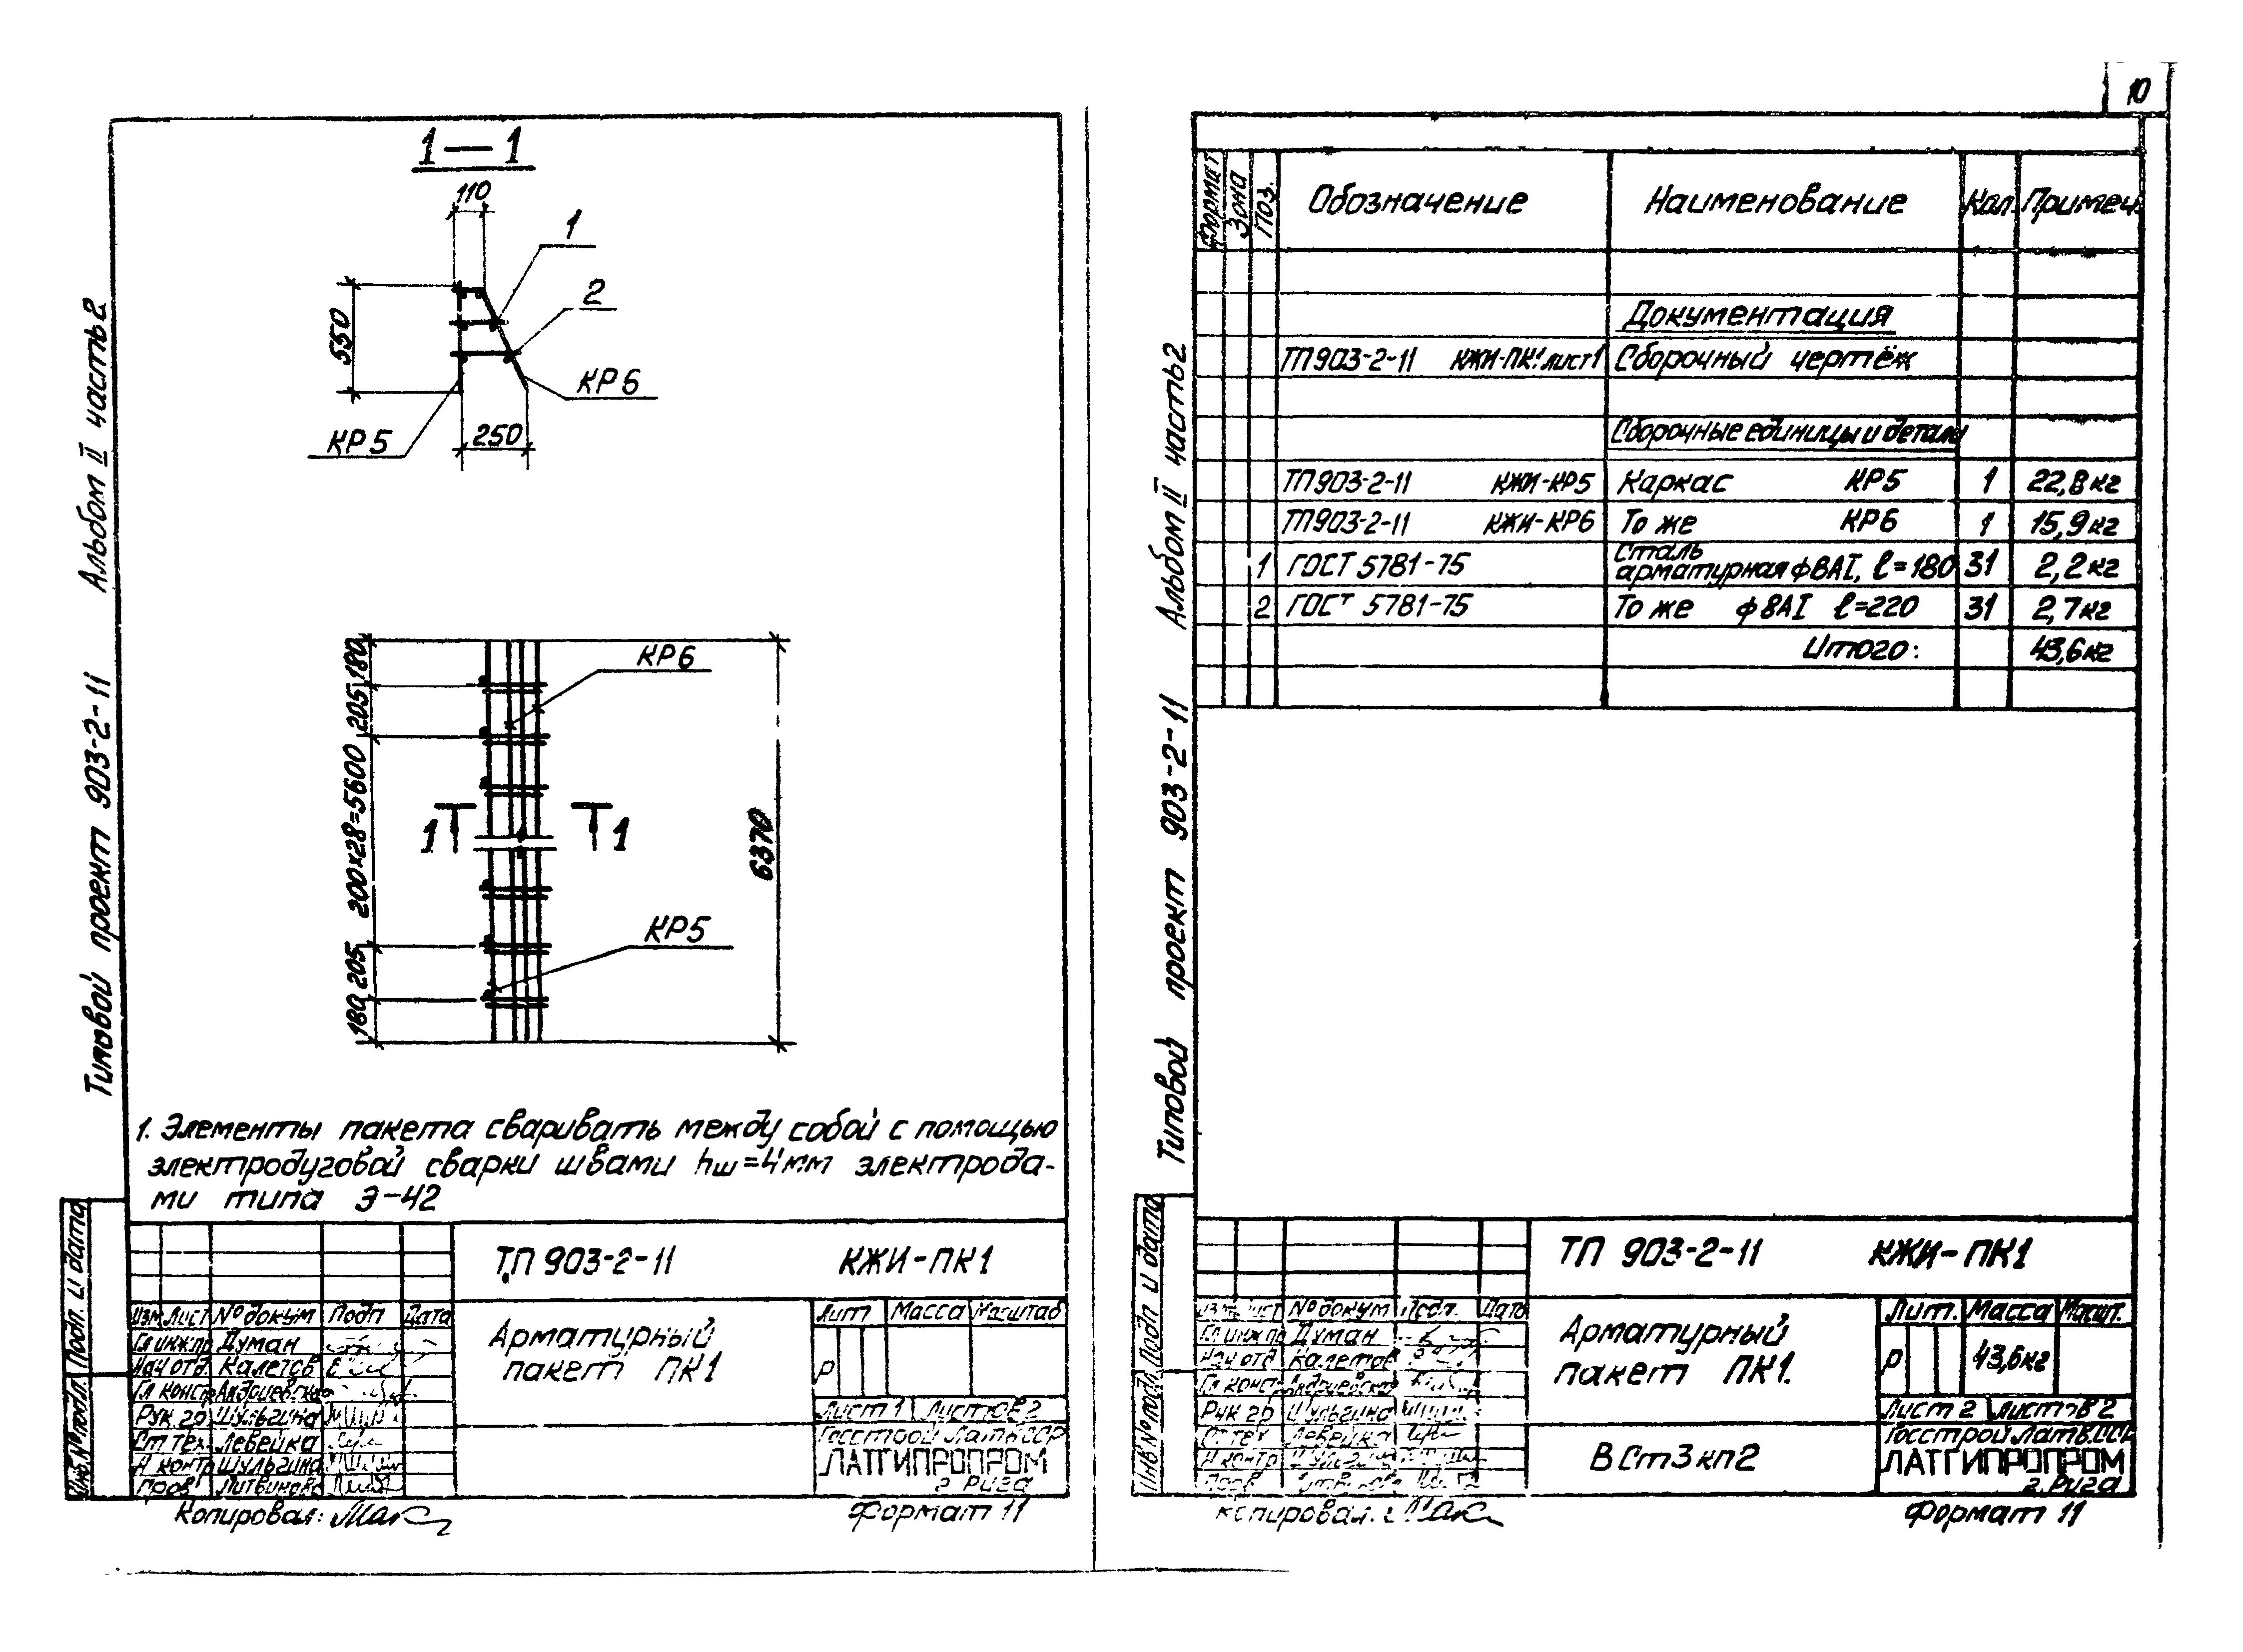 10
1—1
110
1
2
550
КР6
КР5
250
180
205
200×28=5600
205
180
КР6
1 1
6370
КР5
1. Элементы пакета сваривать между собой с помощью
электродуговой сварки швами hш=4мм электрода-
ми типа Э-42
Типовой проект 903-2-11 Альбом II часть 2
Подп. и дата
Инв.№подл.
ТП 903-2-11 КЖИ-ПК1
Изм. Лист №докум Подп Дата
Гл инж пр Думан
Нач отд. Калетов
Гл констр
Рук.гр Шульгина
Ст тех. Левейка
Н контр Шульгина
Пров
Арматурный
пакет ПК1
Лит Масса Масштаб
Р
Лист 1 Листов 2
Госстрой Латв ССР
ЛАТГИПРОПРОМ
г. Рига
Копировал:
Формат 11
Формат Зона Поз. Обозначение Наименование Кол. Примеч.
Документация
ТП903-2-11 КЖИ-ПК1 лист1 Сборочный чертёж
Сборочные единицы и детали
ТП903-2-11 КЖИ-КР5 Каркас КР5 1 22,8кг
ТП903-2-11 КЖИ-КР6 То же КР6 1 15,9кг
1 ГОСТ 5781-75 Сталь
арматурная ф8АI, ℓ=180 31 2,2кг
2 ГОСТ 5781-75 То же ф8АI ℓ=220 31 2,7кг
Итого: 43,6кг
Типовой проект 903-2-11 Альбом II часть 2
Подп и дата
Инв №подл
ТП 903-2-11 КЖИ-ПК1
Изм. Лист №докум Подп. Дата
Гл инж пр Думан
Нач отд Калетов
Гл констр
Рук гр Шульгина
Ст тех Левейка
Н контр
Пров
Арматурный
пакет ПК1.
ВСт3кп2
Лит. Масса Масшт.
Р 43,6кг
Лист 2 Листов 2
Госстрой Латв.ССР
ЛАТГИПРОПРОМ
г. Рига
Копировал:
Формат 11